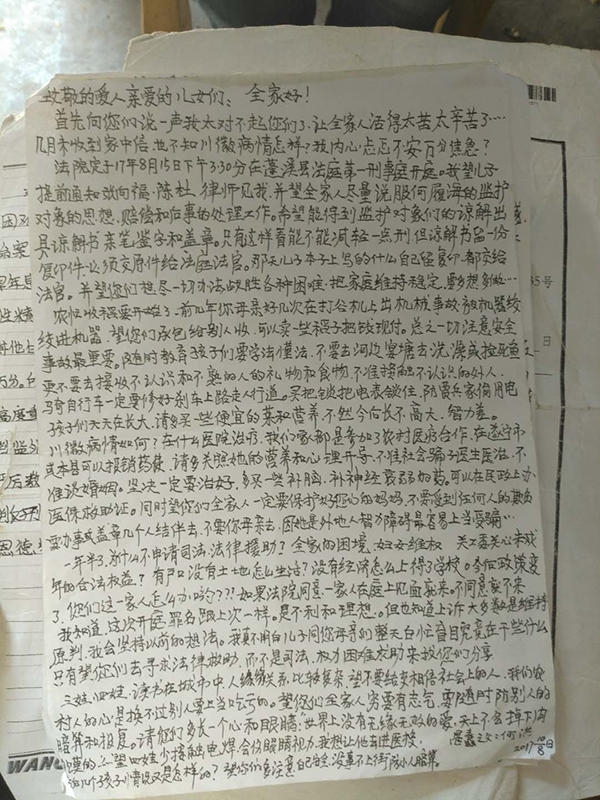 致敬的爱人亲爱的儿女们、全家好!
首先向您们说一声我太对不起您们了、让全家人活得太苦太辛苦了…
几月未收到家中信也不知川微病情怎样?我内心忐忑不安万分焦急?
法院定于17年8月15日下午3:30分在蓬溪县法庭第一刑事庭开庭。我望儿子
提前通知敬向福、陈杜、律师见我、并望全家人尽量说服何履海的监护
对象的思想、赔偿和后事的处理工作。希望能得到监护对象们的谅解出
具谅解书亲笔签字和盖章。只有这样看能不能减轻一点刑但谅解书留一份
复印件、必须交原件给法庭法官。那天儿子本子上写的什么自己留复印都交给
法官。并望您们想尽一切办法战胜各种困难、把家庭维持稳定、要多想多做…
农忙收稻要开始了、前几年你母亲好几次在打谷机上出机械事故、被机器绞
绞进机器、望您们承包给别人收、可以卖一些稻子把钱现付。总之一切注意安全
事故最重要。随时教育孩子们要学法懂法、不要去河边堰塘去洗澡或捡死鱼
更不要去接收不认识和不熟的人的礼物和食物、不准接触不认识的外人、
骑自行车一定要修好刹车上路走人行道。买把锁把电表锁住、防贾兵家偷用电
孩子们天天在长大、请多买一些便宜的菜和营养、不然今后长不高大、智力差。
川微病情如何?在什么医院治疗、我们家都是参加了农村医疗合作、在遂宁市
或本县可以报销药费、请多关照她的营养和心理开导、不准社会骗子医生医治、不
准说婚姻。坚决一定要治好、多买一些补脑、补神经衰弱的药、可以在民政上办
医保救助证。同时望你们全家人一定要保护好您们的妈妈、不要受到任何人的欺负
要办事或盖章几个人结伴去、不要你母亲去、因她是外地人智力障碍最容易上当受骗…
一年半了、为什么不申请司法、法律援助?全家的困境、妇女维权 关工委关心未成
年的合法权益?有户口没有土地怎么生活?没有经济怎么上得了学校。
了、你们这一家人怎么办哟???如果法院同意一家人在庭上见面就来、不同意就不来
我知道、这次开庭罪名跟上次一样。是不利和理想。但也知道上诉大多数是维持
原判、我会坚持以前的想法。我真不明白儿子同您母亲们整天白忙盲目究竟在干些什么
只有望您们去寻求法律救助、而不是司法、权力困难求助来救你们
三娃、四娃、读书在城市中人缘关系比较复杂、望不要结交相信社会上的人、我们农
村人的心是换不过别人要上当吃亏的。望您们全家人穷要有志气、要随时防别人的
暗算和报复。请您们多长一个心和眼睛、世界上没有无缘无故的爱、天上不会掉下肉
望四娃少接触电焊会伤眼睛视力、我想让他
几个孩子小情况又是怎样的?望你们多注意自己
2017
10
8日
WANG